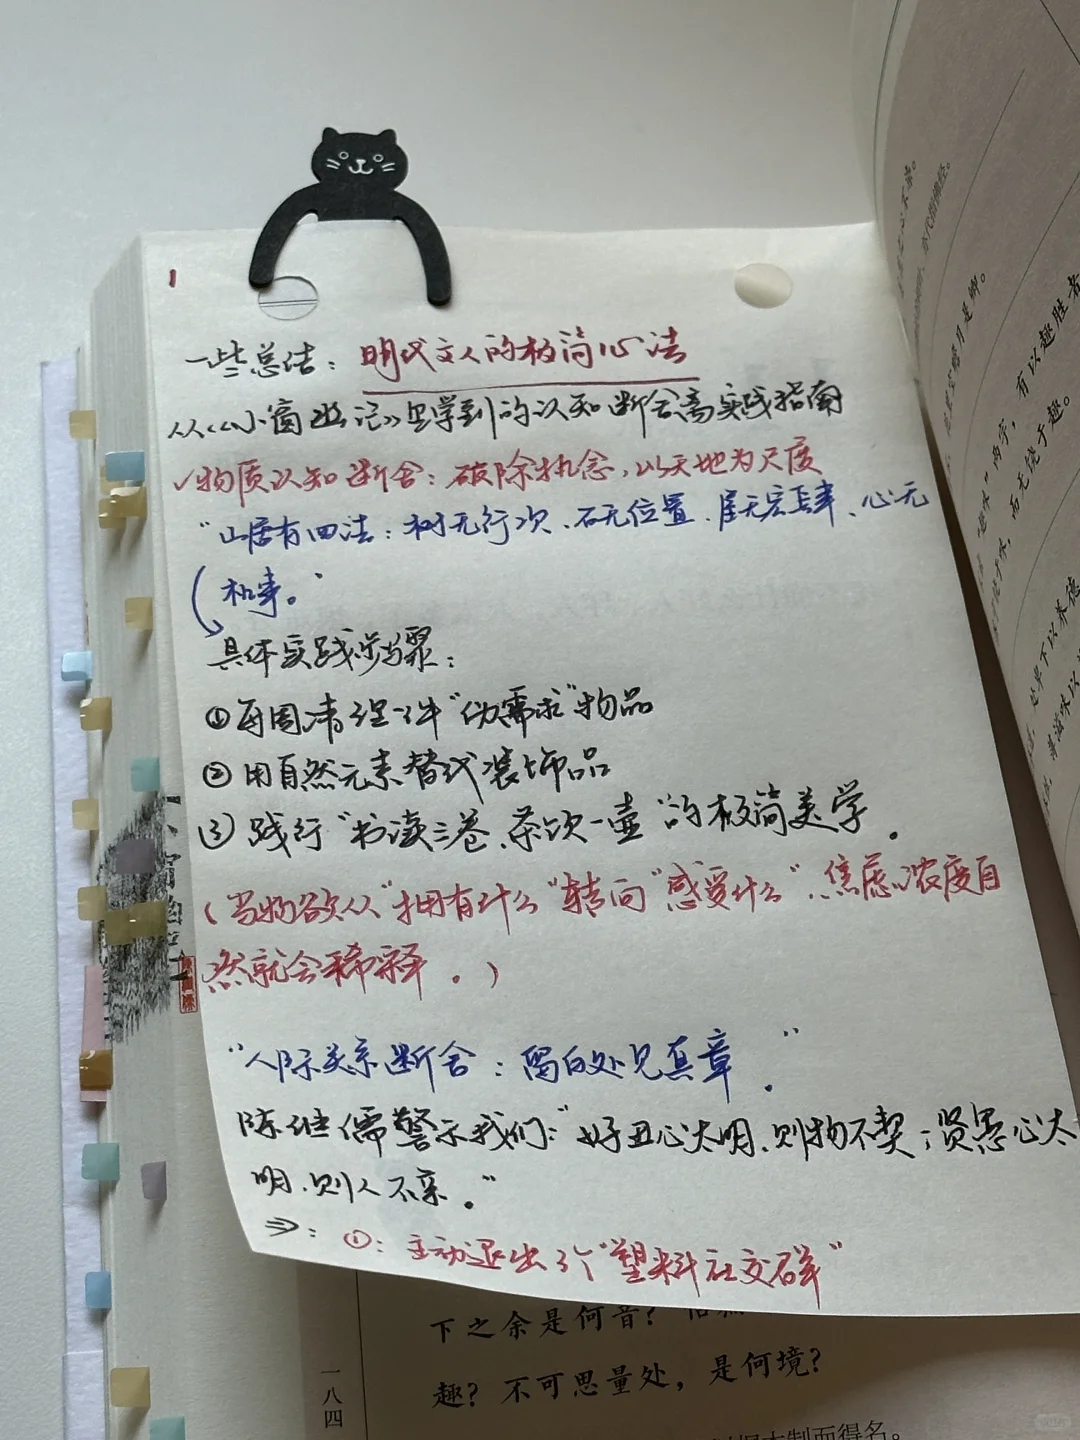 1
一些总结：明代文人的极简心法
从《小窗幽记》里学到的认知断舍离实践指南
✓物质认知断舍：破除执念，以天地为尺度
“山居有四法：树无行次、石无位置、屋无宏肆、心无
机事。”
具体实践步骤：
①每周清理一件“伪需求”物品
②用自然元素替代装饰品
③践行“书读三卷、茶饮一壶”的极简美学。
（当物欲从“拥有什么”转向“感受什么”，焦虑浓度自
然就会稀释。）
“人际关系断舍：留白处见真章。”
陈继儒警示我们：“好丑心太明，则物不契；贤愚心太
明，则人不亲。”
⇒：①：主动退出3个“塑料社交群”
下之余是何音？
趣？不可思量处，是何境？
一八四
而得名。
有以趣胜者
高无饶于趣。